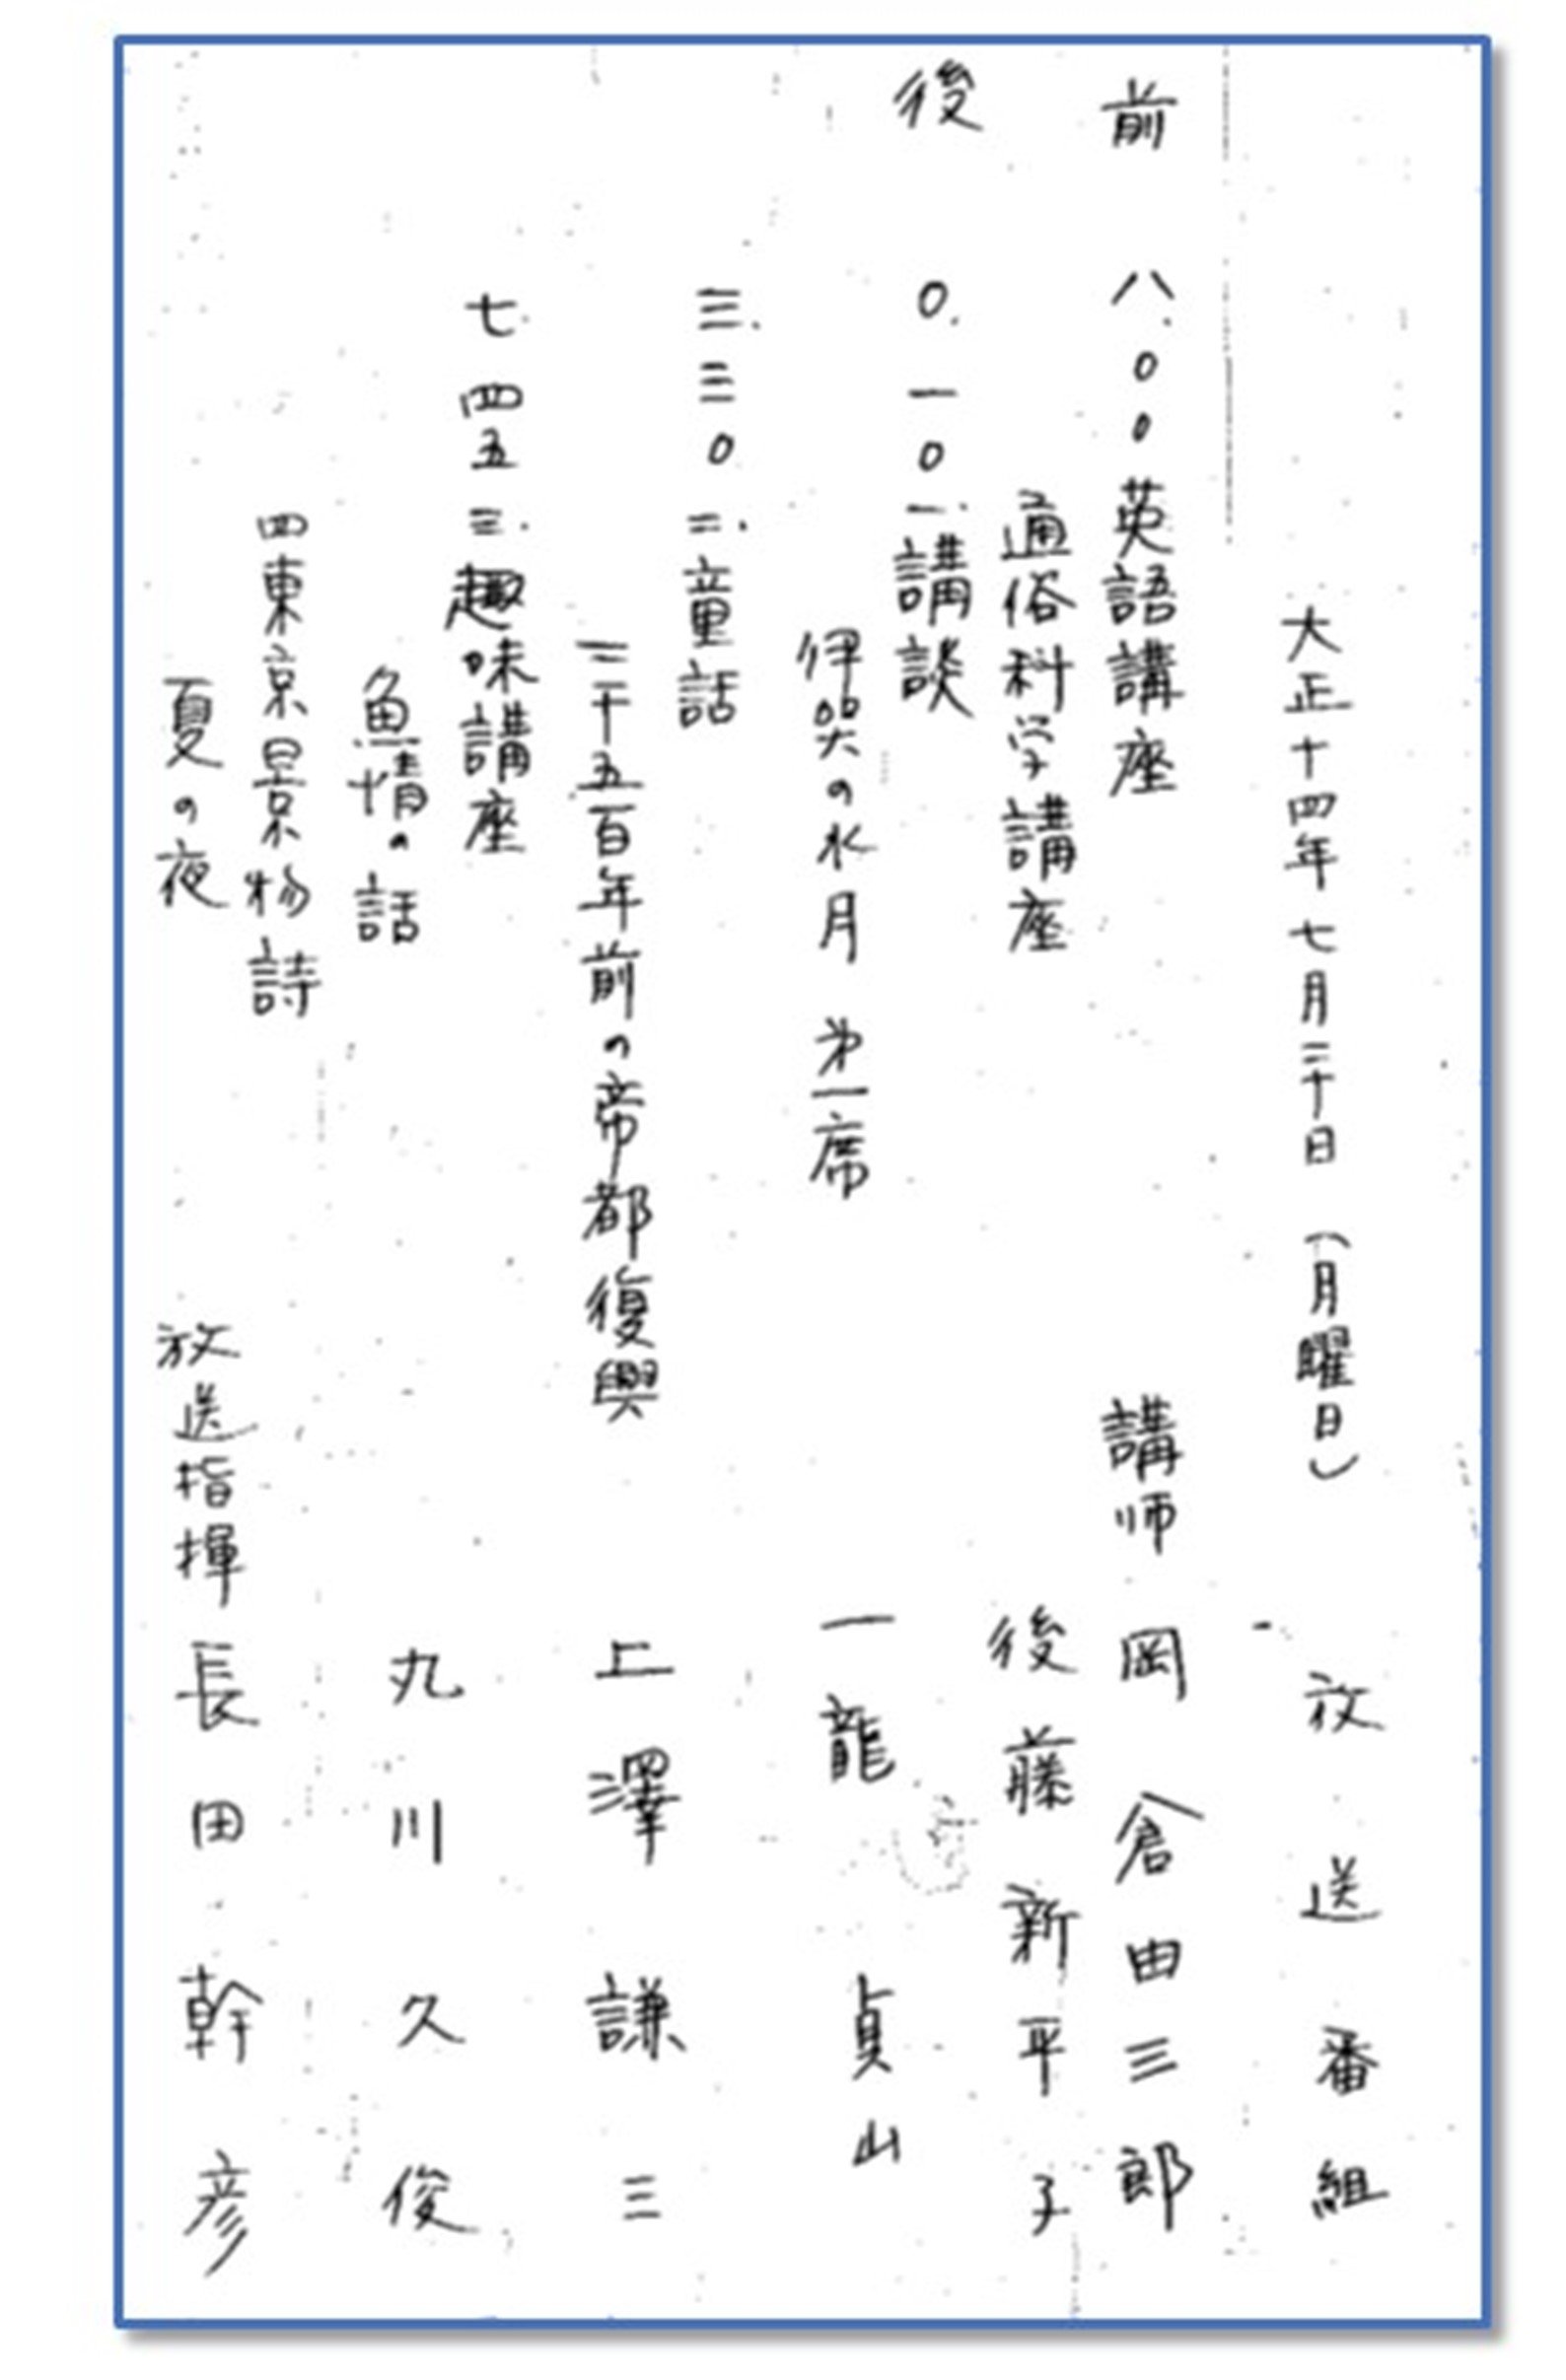 大正十四年七月二十日 (月曜日) 放送番組
前 八.〇〇 英語講座 講師 岡倉由三郎
通俗科学講座 後藤新平子
後 〇.一〇 一.講談
伊哭の水月 第一席 一龍貞山
三.三〇 二.童話
二千五百年前の帝都復興 上澤謙三
七.四五 三.趣味講座
魚情の話 丸川久俊
四東京景物詩
夏の夜 放送指揮 長田幹彦